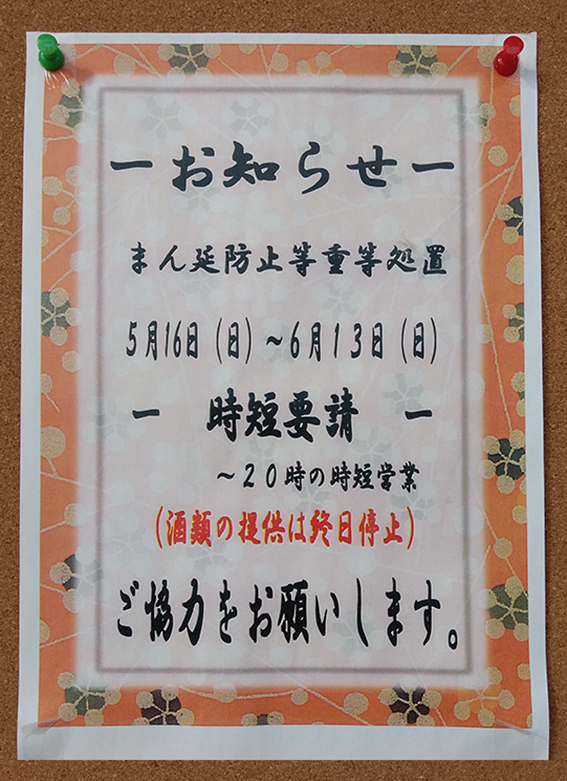 ーお知らせー
まん延防止等重等処置
5月16日（日）～6月13日（日）
ー　時短要請　ー
～20時の時短営業
（酒類の提供は終日停止）
ご協力をお願いします。